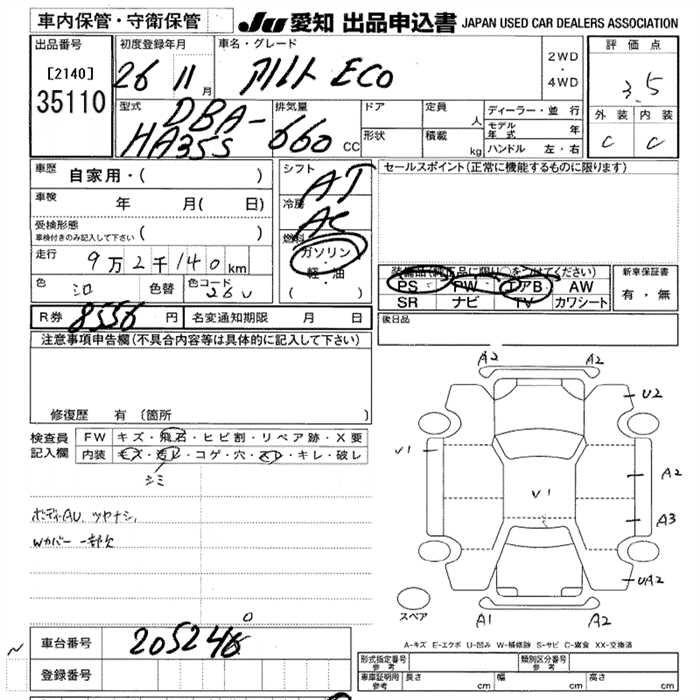 車内保管・守衛保管
JU 愛知 出品申込書 JAPAN USED CAR DEALERS ASSOCIATION
出品番号
[2140]
35110
初度登録年月
26 11月
車名・グレード
アルト ECO
2WD
・
4WD
評価点
3.5
外装 内装
C C
型式
DBA-
HA35S
排気量
660 CC
ドア
定員
人
形状
積載
kg
ディーラー・並行
モデル年式 年
ハンドル 左・右
車歴
自家用・( )
車検
年 月( 日)
受検形態
車検付きのみ記入して下さい ( )
走行
9万2千140km
色 シロ
色替
色コード
26U
シフト
AT
冷房
AC
燃料
ガソリン
・
軽・油
( )
セールスポイント(正常に機能するものに限ります)
装備品(純正品に限り)○をつけてください)
PS PW エアB AW
SR ナビ TV カワシート
新車保証書
有・無
R券 8556 円
名変通知期限 月 日
後日品
注意事項申告欄(不具合内容等は具体的に記入して下さい)
修復歴 有〔箇所
検査員
記入欄
FW キズ・飛石・ヒビ割・リペア跡・X要
内装 キズ・汚レ・コゲ・穴・スレ・キレ・破レ
シミ
ボディAU、ツヤナシ、
Wカバー 一部欠
A2 A2
U2
V1
A2
V1
A3
UA2
スペア
A1 A2
A-キズ E-エクボ U-凹み W-補修跡 S-サビ C-腐食 XX-交換済
車台番号 205246
0
登録番号
形式指定番号
参考
類別区分番号
参考
車庫証明用
参考
長さ cm 幅 cm 高さ cm